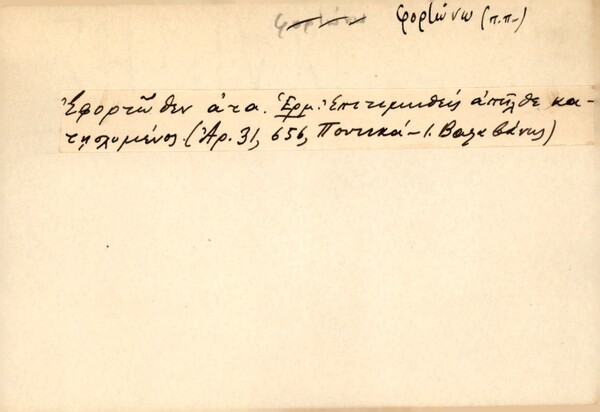 φορτώνω (π.π-)
Ἐφορτῶθεν ἀτα. Ἑρμ: Ἐπιτιμηθείς ἀπῆλθε κα-
τῃσχυμένος. (Ἀρ. 31, 656, Ποντικά - Ι. Βαλαβάνης)